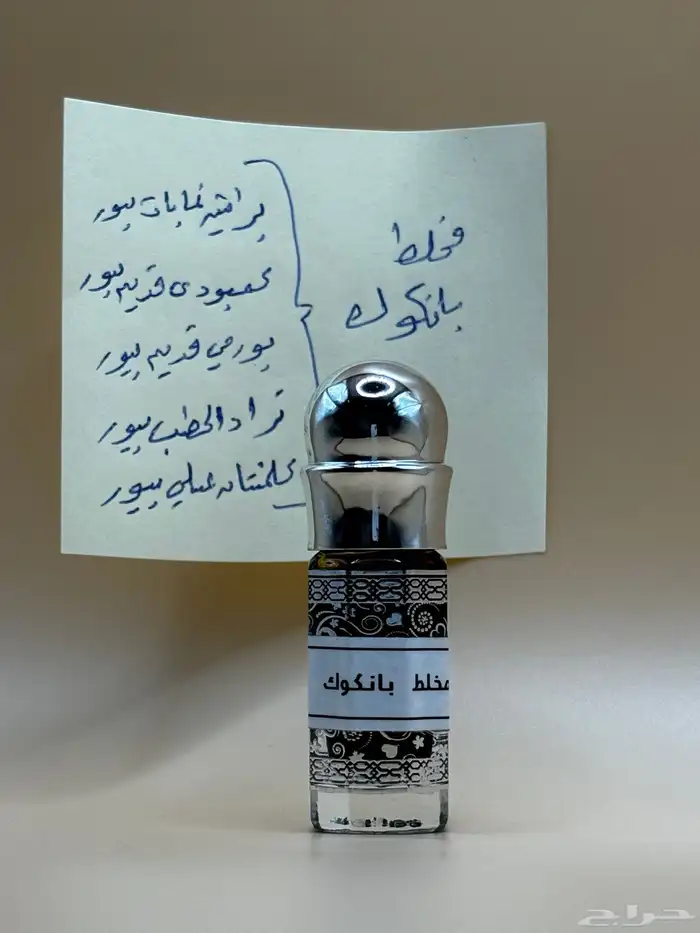 مخلط
بانكوك
براشيه غابات بيور
كمبودي قديم بيور
بورمي قديم بيور
تراد الحطب بيور
كلمنتان عسلي بيور
مخلط بانكوك
حراج